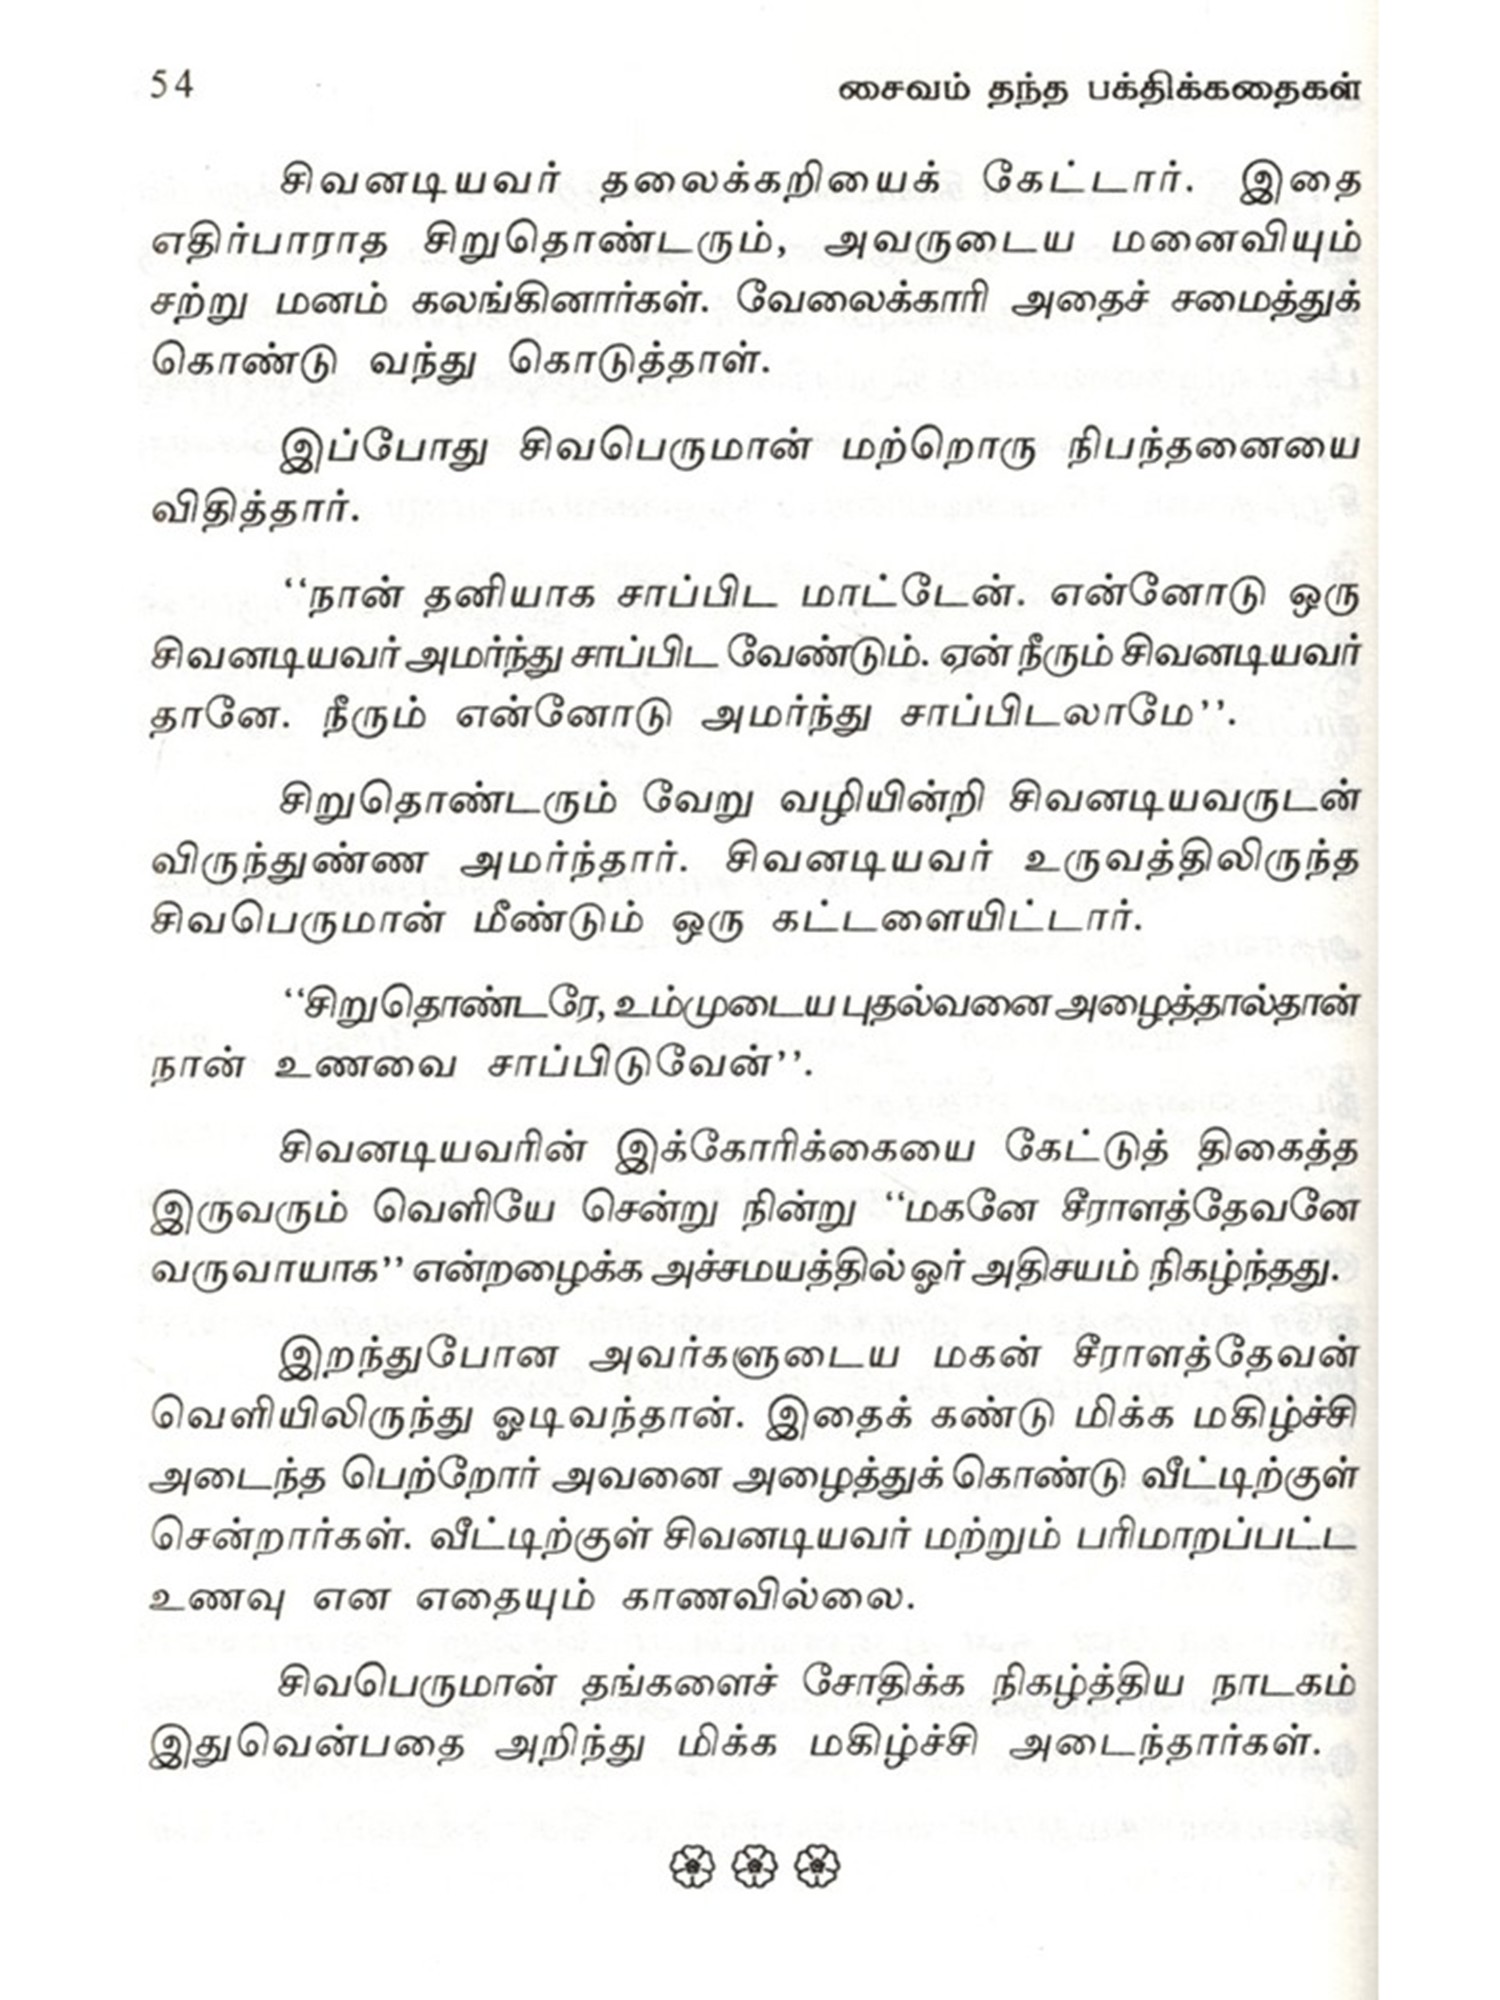 54
சைவம் தந்த பக்திக்கதைகள்
சிவனடியவர் தலைக்கறியைக் கேட்டார். இதை
எதிர்பாராத சிறுதொண்டரும், அவருடைய மனைவியும்
சற்று மனம் கலங்கினார்கள். வேலைக்காரி அதைச் சமைத்துக்
கொண்டு வந்து கொடுத்தாள்.
இப்போது சிவபெருமான் மற்றொரு நிபந்தனையை
விதித்தார்.
‘‘நான் தனியாக சாப்பிட மாட்டேன். என்னோடு ஒரு
சிவனடியவர் அமர்ந்து சாப்பிட வேண்டும். ஏன் நீரும் சிவனடியவர்
தானே. நீரும் என்னோடு அமர்ந்து சாப்பிடலாமே’’.
சிறுதொண்டரும் வேறு வழியின்றி சிவனடியவருடன்
விருந்துண்ண அமர்ந்தார். சிவனடியவர் உருவத்திலிருந்த
சிவபெருமான் மீண்டும் ஒரு கட்டளையிட்டார்.
‘‘சிறுதொண்டரே, உம்முடைய புதல்வனை அழைத்தால்தான்
நான் உணவை சாப்பிடுவேன்’’.
சிவனடியவரின் இக்கோரிக்கையை கேட்டுத் திகைத்த
இருவரும் வெளியே சென்று நின்று ‘‘மகனே சீராளத்தேவனே
வருவாயாக’’ என்றழைக்க அச்சமயத்தில் ஓர் அதிசயம் நிகழ்ந்தது.
இறந்துபோன அவர்களுடைய மகன் சீராளத்தேவன்
வெளியிலிருந்து ஓடிவந்தான். இதைக் கண்டு மிக்க மகிழ்ச்சி
அடைந்த பெற்றோர் அவனை அழைத்துக் கொண்டு வீட்டிற்குள்
சென்றார்கள். வீட்டிற்குள் சிவனடியவர் மற்றும் பரிமாறப்பட்ட
உணவு என எதையும் காணவில்லை.
சிவபெருமான் தங்களைச் சோதிக்க நிகழ்த்திய நாடகம்
இதுவென்பதை அறிந்து மிக்க மகிழ்ச்சி அடைந்தார்கள்.